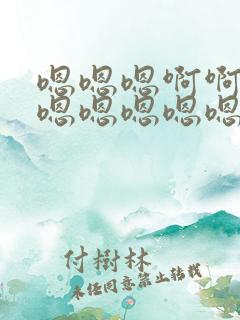 嗯嗯嗯啊啊
嗯嗯嗯嗯嗯
付樹林
未经同意禁止转载